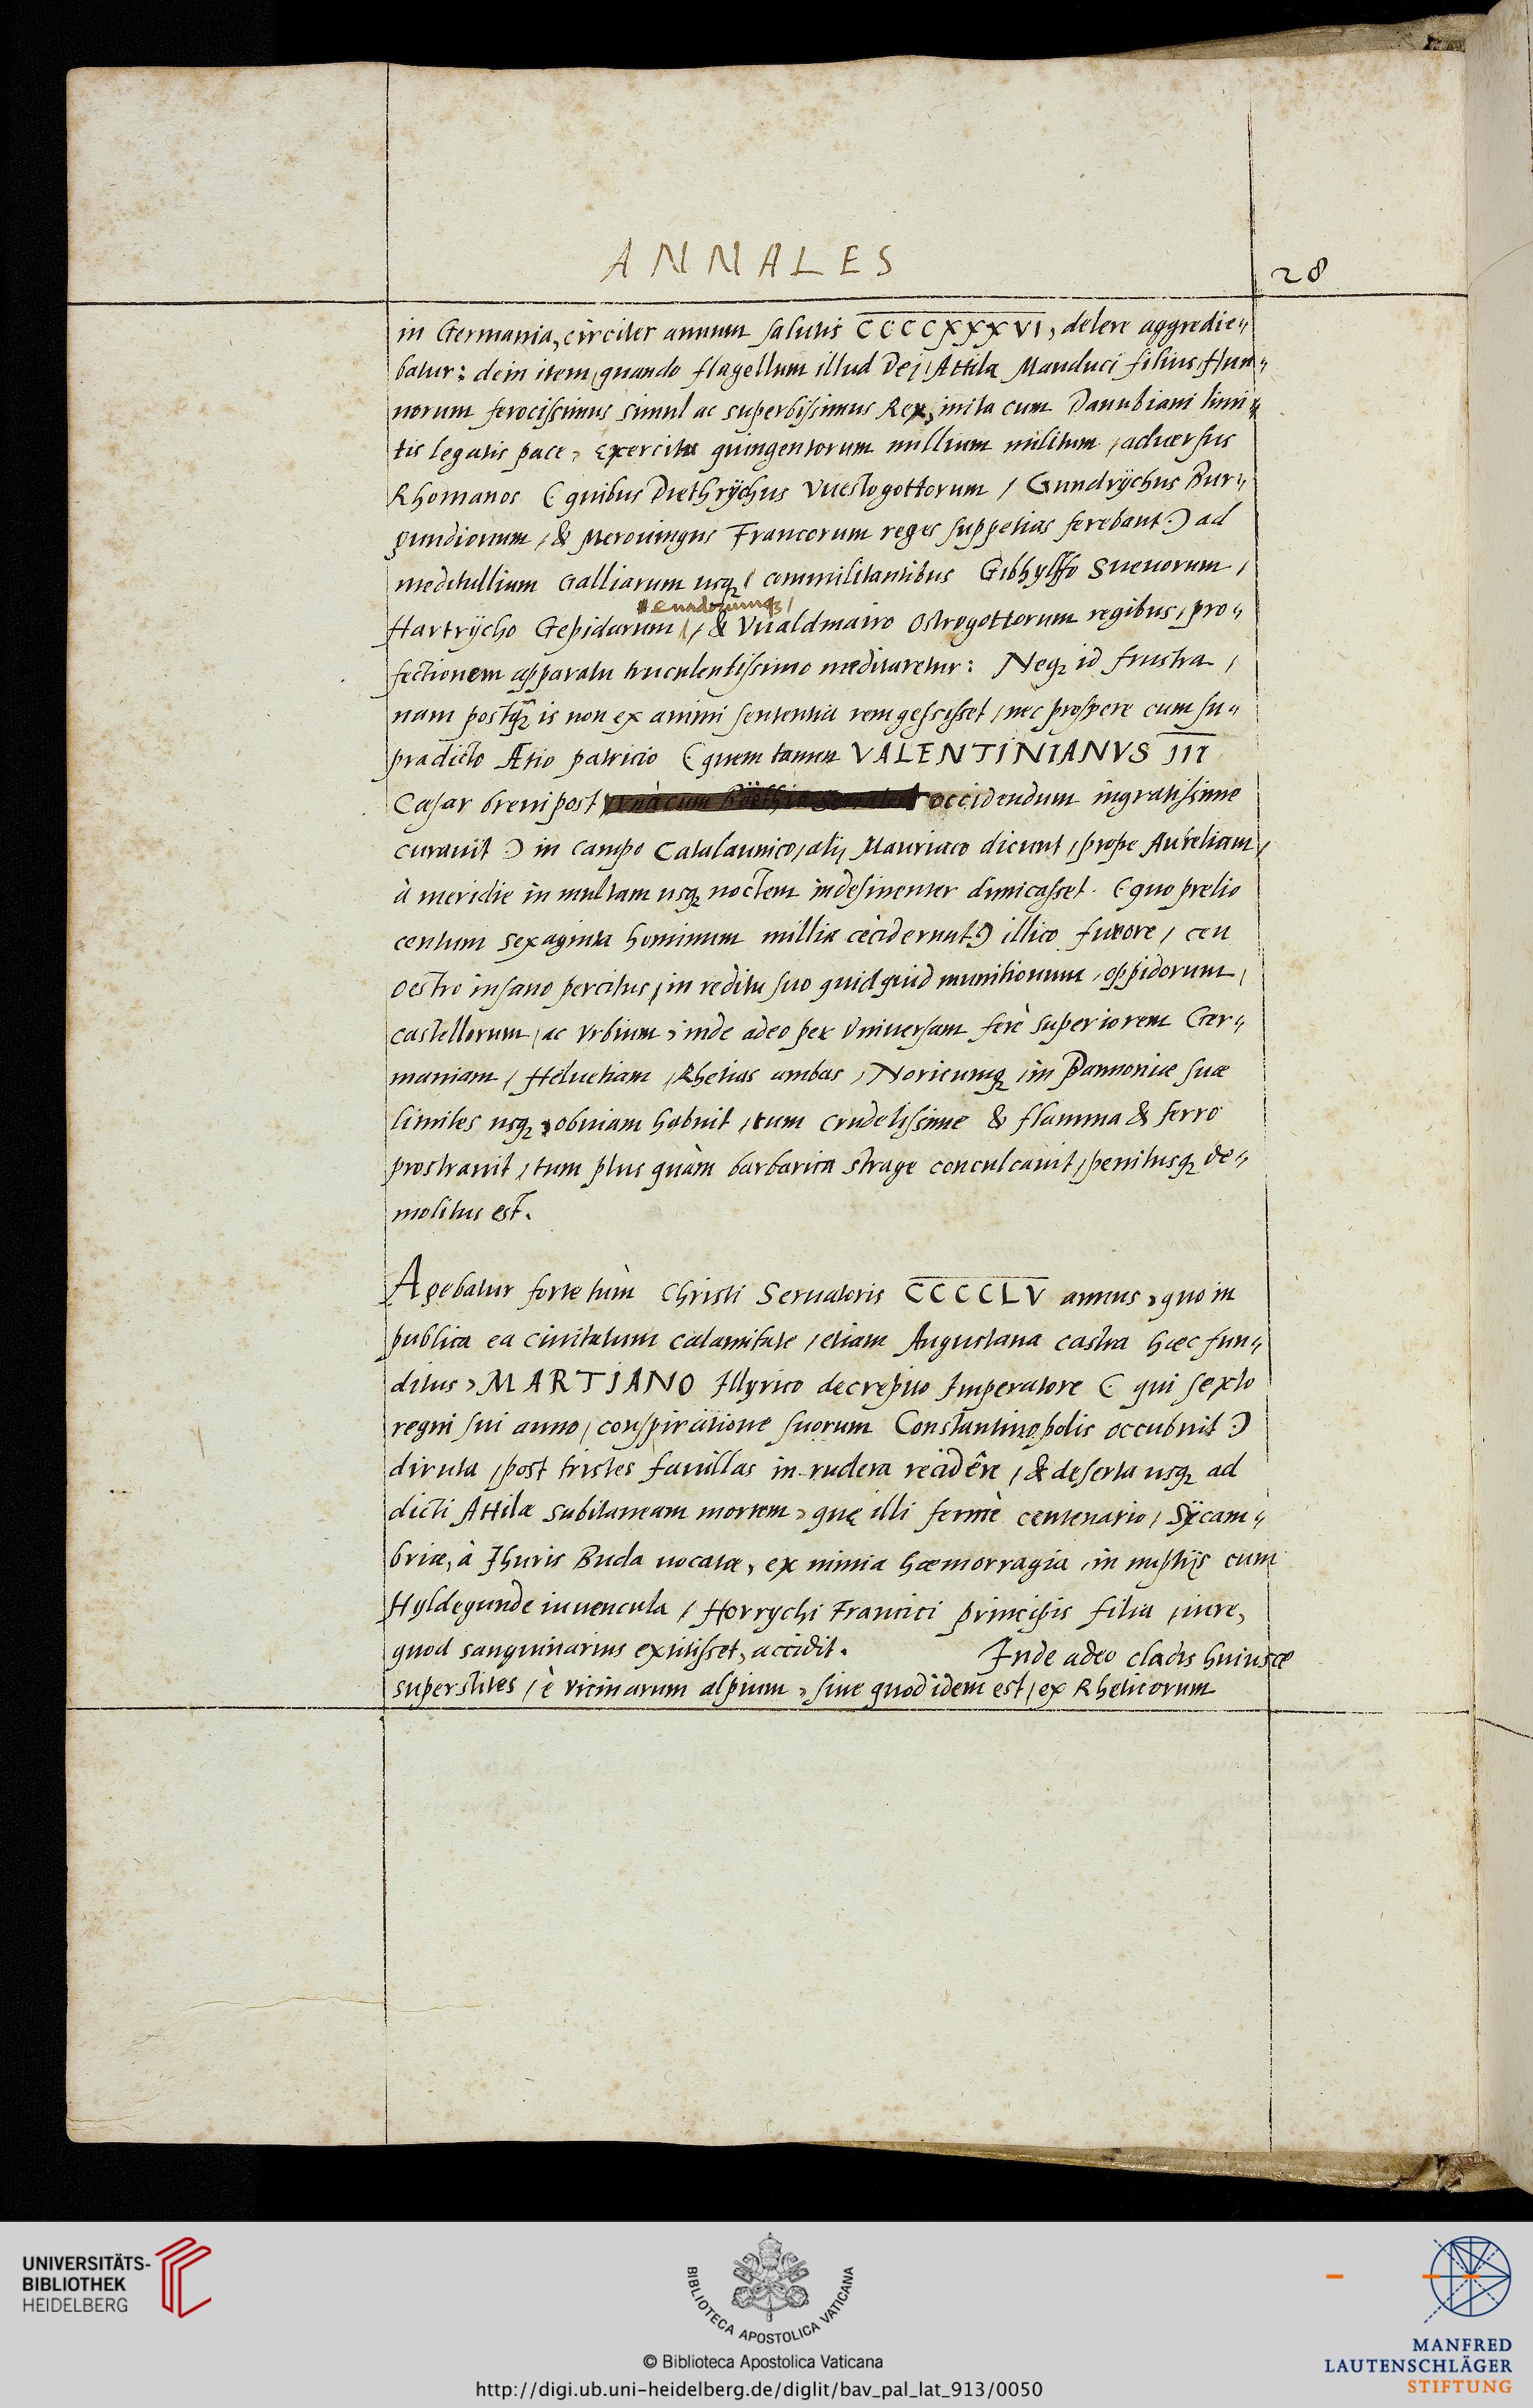 ANNALES
28
in Germania, circiter annum salutis CCCCXXXVI, delere aggredie„
batur: dein item, quando flagellum illud Dei, Attila Manduci filius, Hun„
norum ferocissimus simul ac superbissimus Rex, inita cum Danubiani limi„
tis legatis pace, exercitu quingentorum millium militum, aduersus
Rhomanos (quibus Diethrychus Vuestogottorum, Gundrychus Bur„
gundionum, & Merouingus Francorum reges suppetias ferebant.) ad
meditullium Galliarum usq; commilitantibus Gibhylffo Sueuorum,
eundorumq;
Hartrycho Gepidarum, & Vualdmairo Ostrogottorum regibus, pro„
fectionem apparatu truculentissimo meditaretur: Neq; id frustra,
nam postq̃ is non ex animi sententia rem gessisset, nec prospere cum su„
pradicto Ætio patricio (quem tamen VALENTINIANVS III
Cæsar breui post occidendum ingratissime
curauit) in campo Catalaunico, alij Mauriaco dicunt, prope Aureliam,
à meridie in multam usq; noctem indesinenter dimicasset. (quo prelio
centum sexaginta hominum millia cecidernut) illico furore, ceu
oestro insano percitus, in reditu suo quidquid munitionum, oppidorum,
castellorum, ac vrbium, inde adeo per vniuersam ferè superiorem Ger„
maniam, Heluetiam, Rhetias ambas, Noricumq; in Pannoniæ suæ
limites usq; obuiam habuit, tum crudelissime & flamma & ferro
prostrauit, tum plus quàm barbarica strage conculcauit, penitusq; de„
molitus est.
Agebatur forte tùm Christi Seruatoris CCCCLV annus, quo in
publica ea ciuitatum calamitate, etiam Augustana castra hæc fun„
ditus, MARTIANO Illyrico decrepito Imperatore (qui sexto
regni sui anno, conspiratione suorum Constantinopolis occubuit)
diruta, post tristes fauillas in rudera recidêre, & deserta usq; ad
dicti Attilæ subitaneam mortem, quę illi fermè centenario, Sycam„
briæ, à Jhuris Buda uocatæ, ex nimia hæmorragia, in nuptijs cum
Hyldegunde iuuencula, Horrychi Francici principis filia, iure,
quod sanguinarius extitisset, accidit. Inde adeo cladis huiusce
superstites, è vicinarum alpium, siue quod idem est, ex Rheticorum
UNIVERSITÄTS-
BIBLIOTHEK
HEIDELBERG
BIBLIOTECA APOSTOLICA VATICANA
© Biblioteca Apostolica Vaticana
http://digi.ub.uni-heidelberg.de/diglit/bav_pal_lat_913/0050
MANFRED
LAUTENSCHLÄGER
STIFTUNG